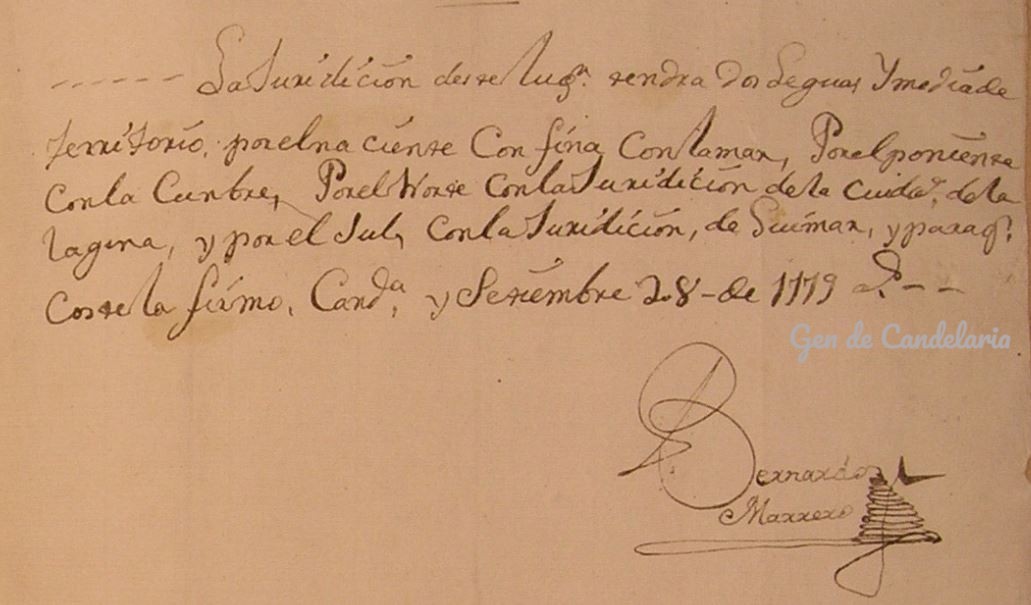 ----- La Juridición deste lugr. tendra dos Leguas Y media de
territorio, por el naciente Confina Con la mar, Por el poniente
Con la Cunbre, Por el Norte Con la Juridición de la Cuidad. de la
laguna, y por el Sul, Con la Juridición, de Guimar, y para q.
Coste la firmo, Canda, y Setiembre 28-de 1779 as.--
Gen de Candelaria
Bernardo
Marrero